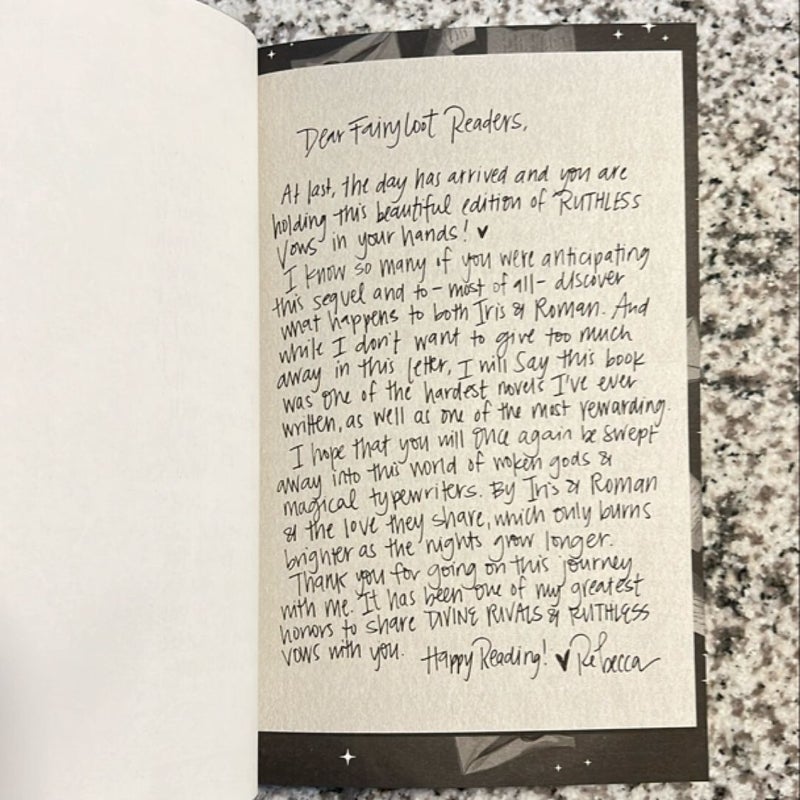 Dear Fairyloot Readers,
At last, the day has arrived and you are
holding this beautiful edition of RUTHLESS
VOWS in your hands! ♥
I know so many of you were anticipating
this sequel and to - most of all - discover
what happens to both Iris & Roman. And
while I don't want to give too much
away in this letter, I will say this book
was one of the hardest novels I've ever
written, as well as one of the most rewarding.
I hope that you will once again be swept
away into this world of woken gods &
magical typewriters. By Iris & Roman
& the love they share, which only burns
brighter as the nights grow longer.
Thank you for going on this journey
with me. It has been one of my greatest
honors to share DIVINE RIVALS & RUTHLESS
VOWS with you. Happy Reading! ♥ Rebecca